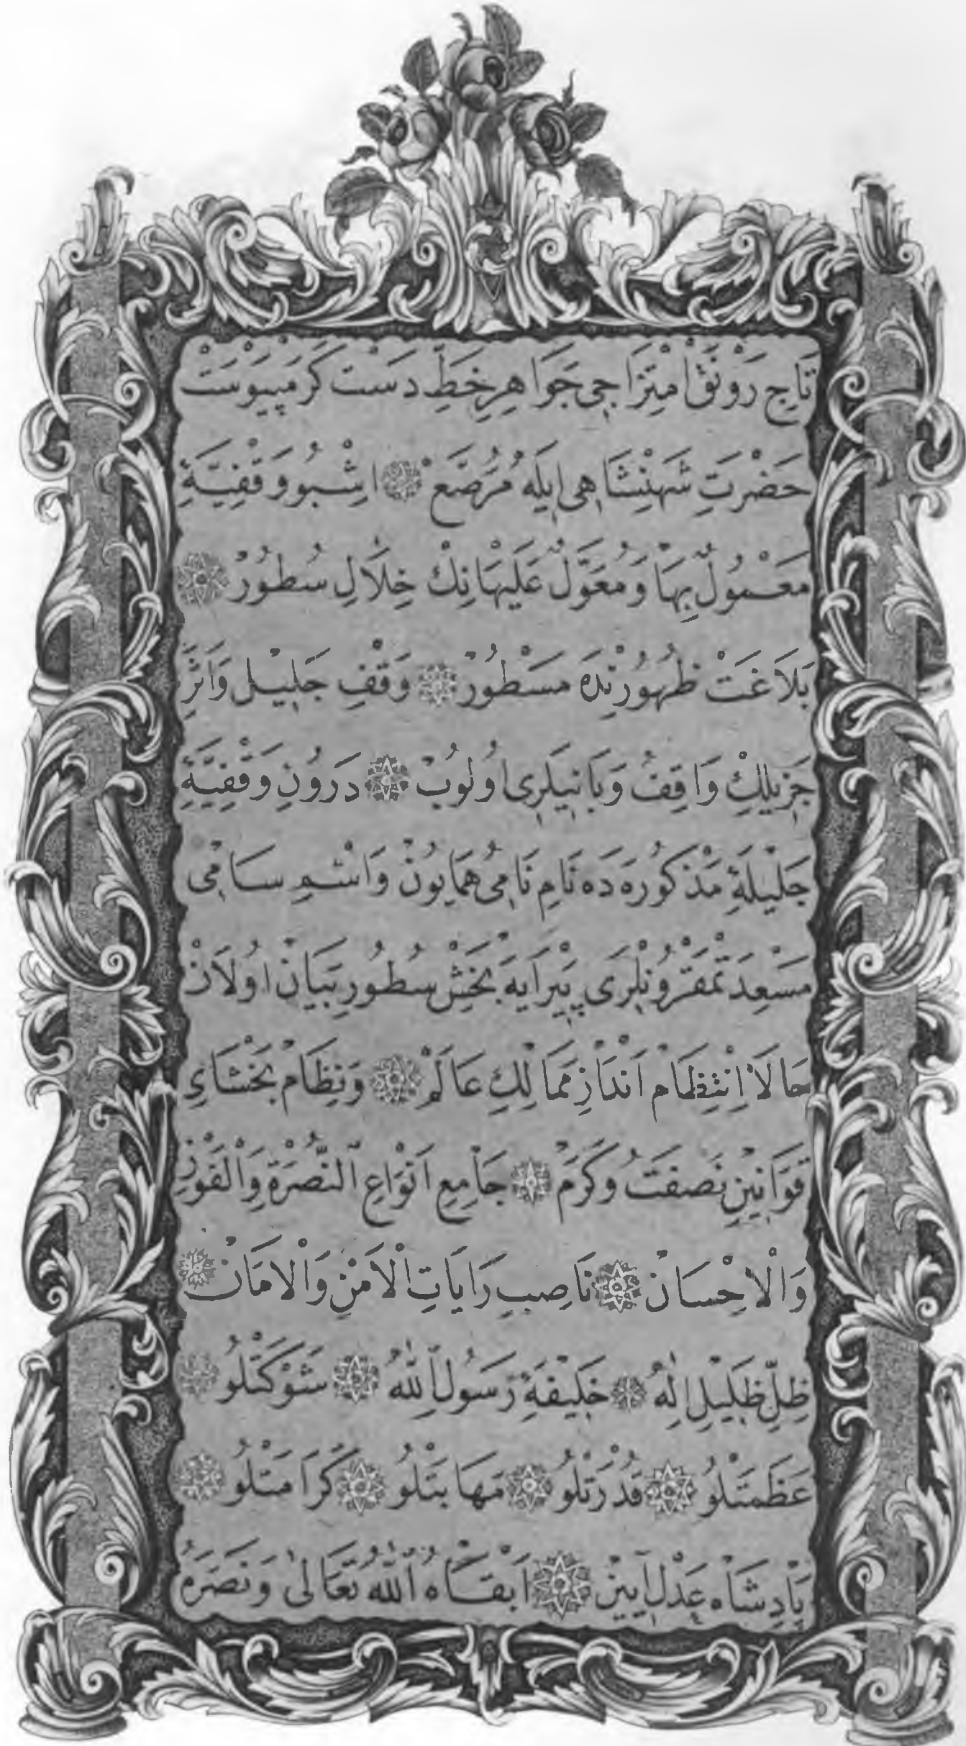 تَاجِ رَوْنَقْ اِمْتِزَاجِی جَوَاهِرِ خَطِّ دَسْتِ كَرَمْپَیْوَسْتْ
حَضْرَتِ شَهَنْشَاهِی اِیلَهْ مُرَصَّعْ اِشْبُو وَقْفِیَّهٔ
مَعْمُولٌ بِهَا وَمُعَوَّلٌ عَلَیْهَانِكْ خِلَالِ سُطُورْ
بَلَاغَتْ ظُهُورَنْدَهْ مَسْطُورْ وَقْفِ جَلِیلْ وَاَثَرِ
جَزِیلِكْ وَاقِفْ وَبَانِیلَرِی اُولُوبْ دَرُونِ وَقْفِیَّهٔ
جَلِیلَهٔ مَذْكُورَهدَه نَامِ نَامِی هُمَایُونْ وَاسْمِ سَامِی
مَسْعِدَتْمَقْرُونْلَرِی پِیرَایَه بَخْشِ سُطُورِ بَیَانْ اُولَانْ
حَالَا اِنْتِظَامْ اَنْدَازِ مَمَالِكِ عَالَمْ وَنِظَامْ بَخْشَایِ
قَوَانِینِ نَصَفَتْ وَكَرَمْ جَامِعِ اَنْوَاعِ النُّصْرَةِ وَالْفَوْزِ
وَالْاِحْسَانْ نَاصِبِ رَایَاتِ الْاَمْنِ وَالْاَمَانْ
ظِلِّ ظَلِیلِ اِلٰهْ خَلِیفَهٔ رَسُولُ اللّٰهْ شَوْكَتْلُو
عَظَمَتْلُو قُدْرَتْلُو مَهَابَتْلُو كَرَامَتْلُو
پَادِشَاهِ عَدْلْ آیِینْ اَبْقَاهُ اللّٰهُ تَعَالٰی وَنَصَرَهُ